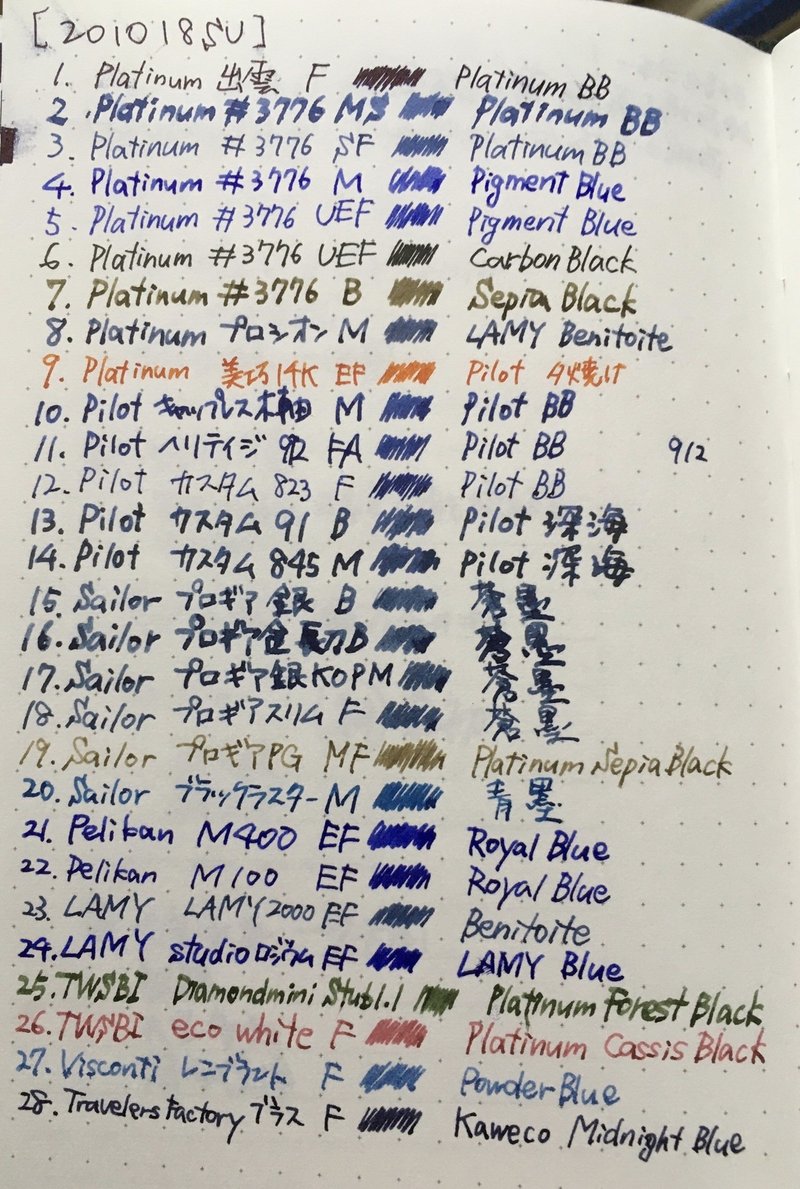 [201018SU]
1. Platinum 出雲 F Platinum BB
2. Platinum #3776 MS Platinum BB
3. Platinum #3776 SF Platinum BB
4. Platinum #3776 M Pigment Blue
5. Platinum #3776 UEF Pigment Blue
6. Platinum #3776 UEF Carbon Black
7. Platinum #3776 B Sepia Black
8. Platinum プロシオン M LAMY Benitoite
9. Platinum 美巧14K EF Pilot 夕焼け
10. Pilot キャップレス木軸 M Pilot BB
11. Pilot ヘリテイジ 912 FA Pilot BB 912
12. Pilot カスタム 823 F Pilot BB
13. Pilot カスタム 91 B Pilot 深海
14. Pilot カスタム 845 M Pilot 深海
15. Sailor プロギア 銀 B 蒼墨
16. Sailor プロギア金 長刀B 蒼墨
17. Sailor プロギア銀KOPM 蒼墨
18. Sailor プロギアスリム F 蒼墨
19. Sailor プロギアPG MF Platinum Sepia Black
20. Sailor ブラックラスター M 青墨
21. Pelikan M400 EF Royal Blue
22. Pelikan M100 EF Royal Blue
23. LAMY LAMY2000 EF Benitoite
24. LAMY studioロジウム EF LAMY Blue
25. TWSBI Diamondmini Stub1.1 Platinum Forest Black
26. TWSBI eco white F Platinum Cassis Black
27. Visconti レンブラント F Powder Blue
28. Travelers Factory ブラス F Kaweco Midnight Blue